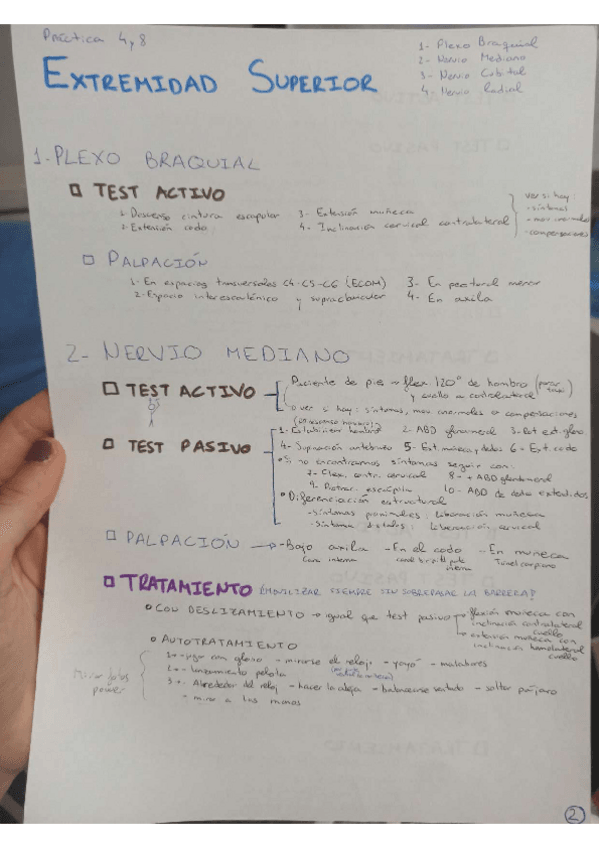 Práctica 4,8
1- Plexo Braquial
2- Nervio Mediano
3- Nervio Cubital
4- Nervio Radial
EXTREMIDAD SUPERIOR
1-PLEXO BRAQUIAL
TEST ACTIVO
1. Descenso cintura escapular 3- Extensión muñeca
2. Extensión codo 4- Inclinación cervical contralateral
ver si hay:
-síntomas
-mov. anormales
-compensaciones
PALPACIÓN
1- En espacios transversales C4-C5-C6 (ECOM) 3- En pectoral menor
2-Espacio interescalénico y supraclavicular 4- En axila
2- NERVIO MEDIANO
TEST ACTIVO
Paciente de pie → flex 120° de hombro
y cuello a contralateral
o ver si hay: síntomas, mov anormales o compensaciones
TEST PASIVO
1- Establizar hombro 2- ABD glenohumeral 3- Rot ext. gleno.
4- Supinación antebrazo 5- Ext. muñeca y dedos 6- Ext. codo
Si no encontramos síntomas seguir con:
7- Flex. contr. cervical 8- + ABD glenohumeral
10- ABD de dedos extendidos
Diferenciación estructural
-síntomas proximales: liberación muñeca
-Síntoma distales: liberación cervical
PALPACIÓN → -Bajo axila -En el codo - En muñeca
Cara interna
Túnel carpiano
TRATAMIENTO ¡MOVILIZAR SIEMPRE SIN SOBREPASAR LA BARRERA!
CON DESLIZAMIENTO → igual que test pasivo → flexión muñeca con
inclinación contralateral
cuello
extensión muñeca con
inclinación homolateral
cuello
AUTOTRATAMIENTO
mirarse el reloj - yoyó - malabares
Mirar fotos
power
2 lanzamiento pelota
3 Alrededor del reloj - hacer la abeja - balancearse sentado - soltar pájaro
- mirar a las manos
2